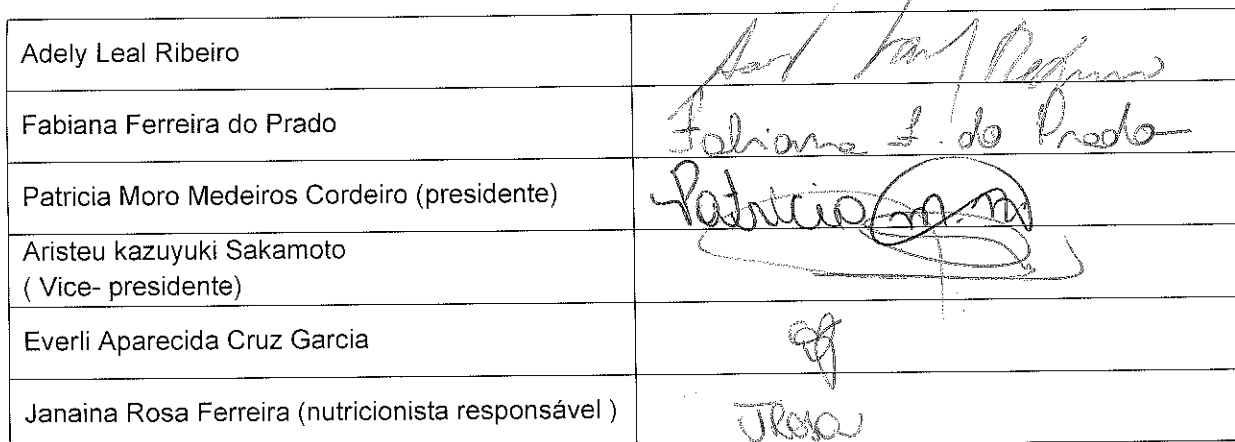 Adely Leal Ribeiro
Fabiana Ferreira do Prado
Fabiana F. do Prado
Patricia Moro Medeiros Cordeiro (presidente)
Patricia m.m
Aristeu kazuyuki Sakamoto
( Vice- presidente)
Everli Aparecida Cruz Garcia
Janaina Rosa Ferreira (nutricionista responsável )
JRosa